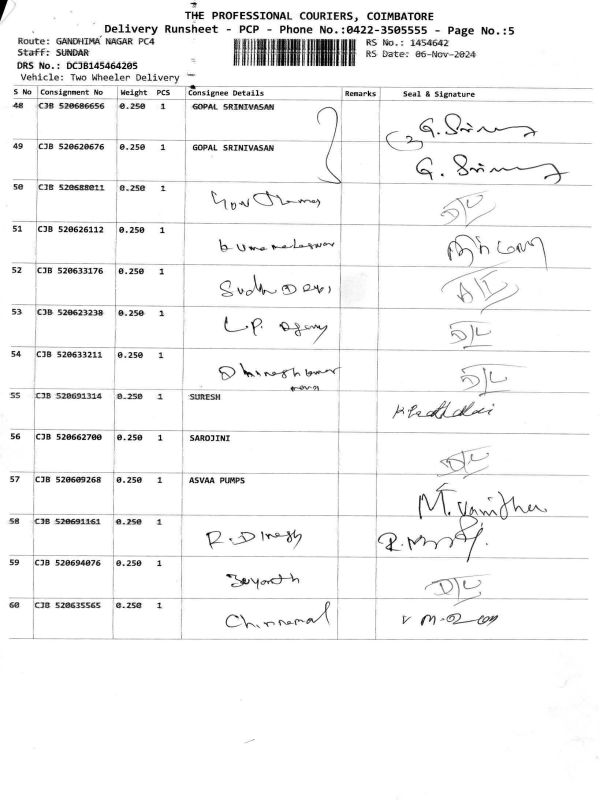 THE PROFESSIONAL COURIERS, COIMBATORE
Delivery Runsheet - PCP - Phone No.:0422-3505555 - Page No.:5
Route: GANDHIMA NAGAR PC4 RS No.: 1454642
Staff: SUNDAR RS Date: 06-Nov-2024
DRS No.: DCJB145464205
Vehicle: Two Wheeler Delivery
S No Consignment No Weight PCS Consignee Details Remarks Seal & Signature
48 CJB 520606656 0.250 1 GOPAL SRINIVASAN
49 CJB 520620676 0.250 1 GOPAL SRINIVASAN
50 CJB 520688011 0.250 1 D/L
51 CJB 520626112 0.250 1
52 CJB 520633176 0.250 1 Sudha Devi
53 CJB 520623238 0.250 1 L.P. D/L
54 CJB 520633211 0.250 1 D/L
55 CJB 520691314 0.250 1 SURESH
56 CJB 520662700 0.250 1 SAROJINI D/L
57 CJB 520609268 0.250 1 ASVAA PUMPS M. Vanitha
58 CJB 520691161 0.250 1 R. Dinesh
59 CJB 520694076 0.250 1 D/L
60 CJB 520635565 0.250 1 Chinnamal